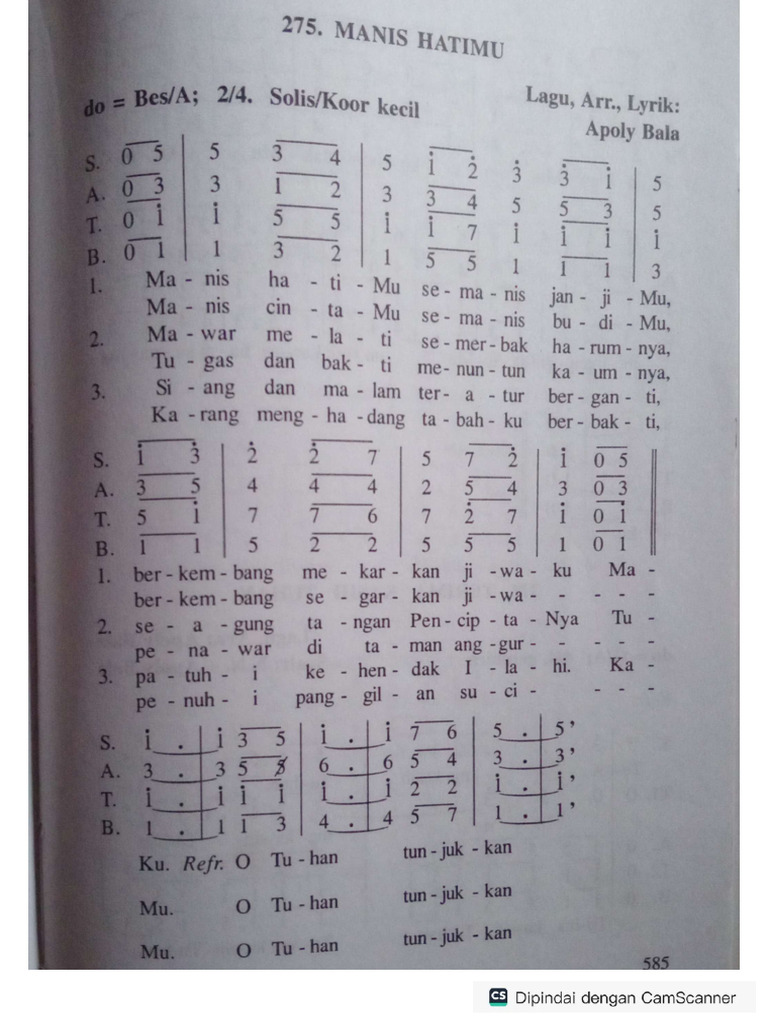 275. MANIS HATIMU
do = Bes/A; 2/4. Solis/Koor kecil
Lagu, Arr., Lyrik:
Apoly Bala
S. 0 5 | 5 3 4 | 5 i 2̇ 3̇ 3̇ i | 5
A. 0 3 | 3 1 2 | 3 3 4 5 5 3 | 5
T. 0 i | i 5 5 | i i 7 i i i | i
B. 0 1 | 1 3 2 | 1 5 5 1 1 1 | 3
1. Ma - nis ha - ti - Mu se - ma - nis jan - ji - Mu,
Ma - nis cin - ta - Mu se - ma - nis bu - di - Mu,
2. Ma - war me - la - ti se - mer - bak ha - rum - nya,
Tu - gas dan bak - ti me - nun - tun ka - um - nya,
3. Si - ang dan ma - lam ter - a - tur ber - gan - ti,
Ka - rang meng - ha - dang ta - bah - ku ber - bak - ti,
S. i 3̇ | 2̇ 2̇ 7 | 5 7 2̇ | i 0 5 ||
A. 3 5 | 4 4 4 | 2 5 4 | 3 0 3 ||
T. 5 i | 7 7 6 | 7 2̇ 7 | i 0 i ||
B. 1 1 | 5 2 2 | 5 5 5 | 1 0 1 ||
1. ber - kem - bang me - kar - kan ji - wa - ku Ma -
ber - kem - bang se - gar - kan ji - wa - - - - -
2. se - a - gung ta - ngan Pen - cip - ta - Nya Tu -
pe - na - war di ta - man ang - gur - - - - -
3. pa - tuh - i ke - hen - dak I - la - hi. Ka -
pe - nuh - i pang - gil - an su - ci - - - -
S. i . | i 3 5 | i . | i 7 6 | 5 . | 5 '
A. 3 . | 3 5 3 | 6 . | 6 5 4 | 3 . | 3 '
T. i . | i i i | i . | i 2 2 | i . | i '
B. 1 . | 1 1 3 | 4 . | 4 5 7 | 1 . | 1 '
Ku. Refr. O Tu - han tun - juk - kan
Mu. O Tu - han tun - juk - kan
Mu. O Tu - han tun - juk - kan
585
CS Dipindai dengan CamScanner